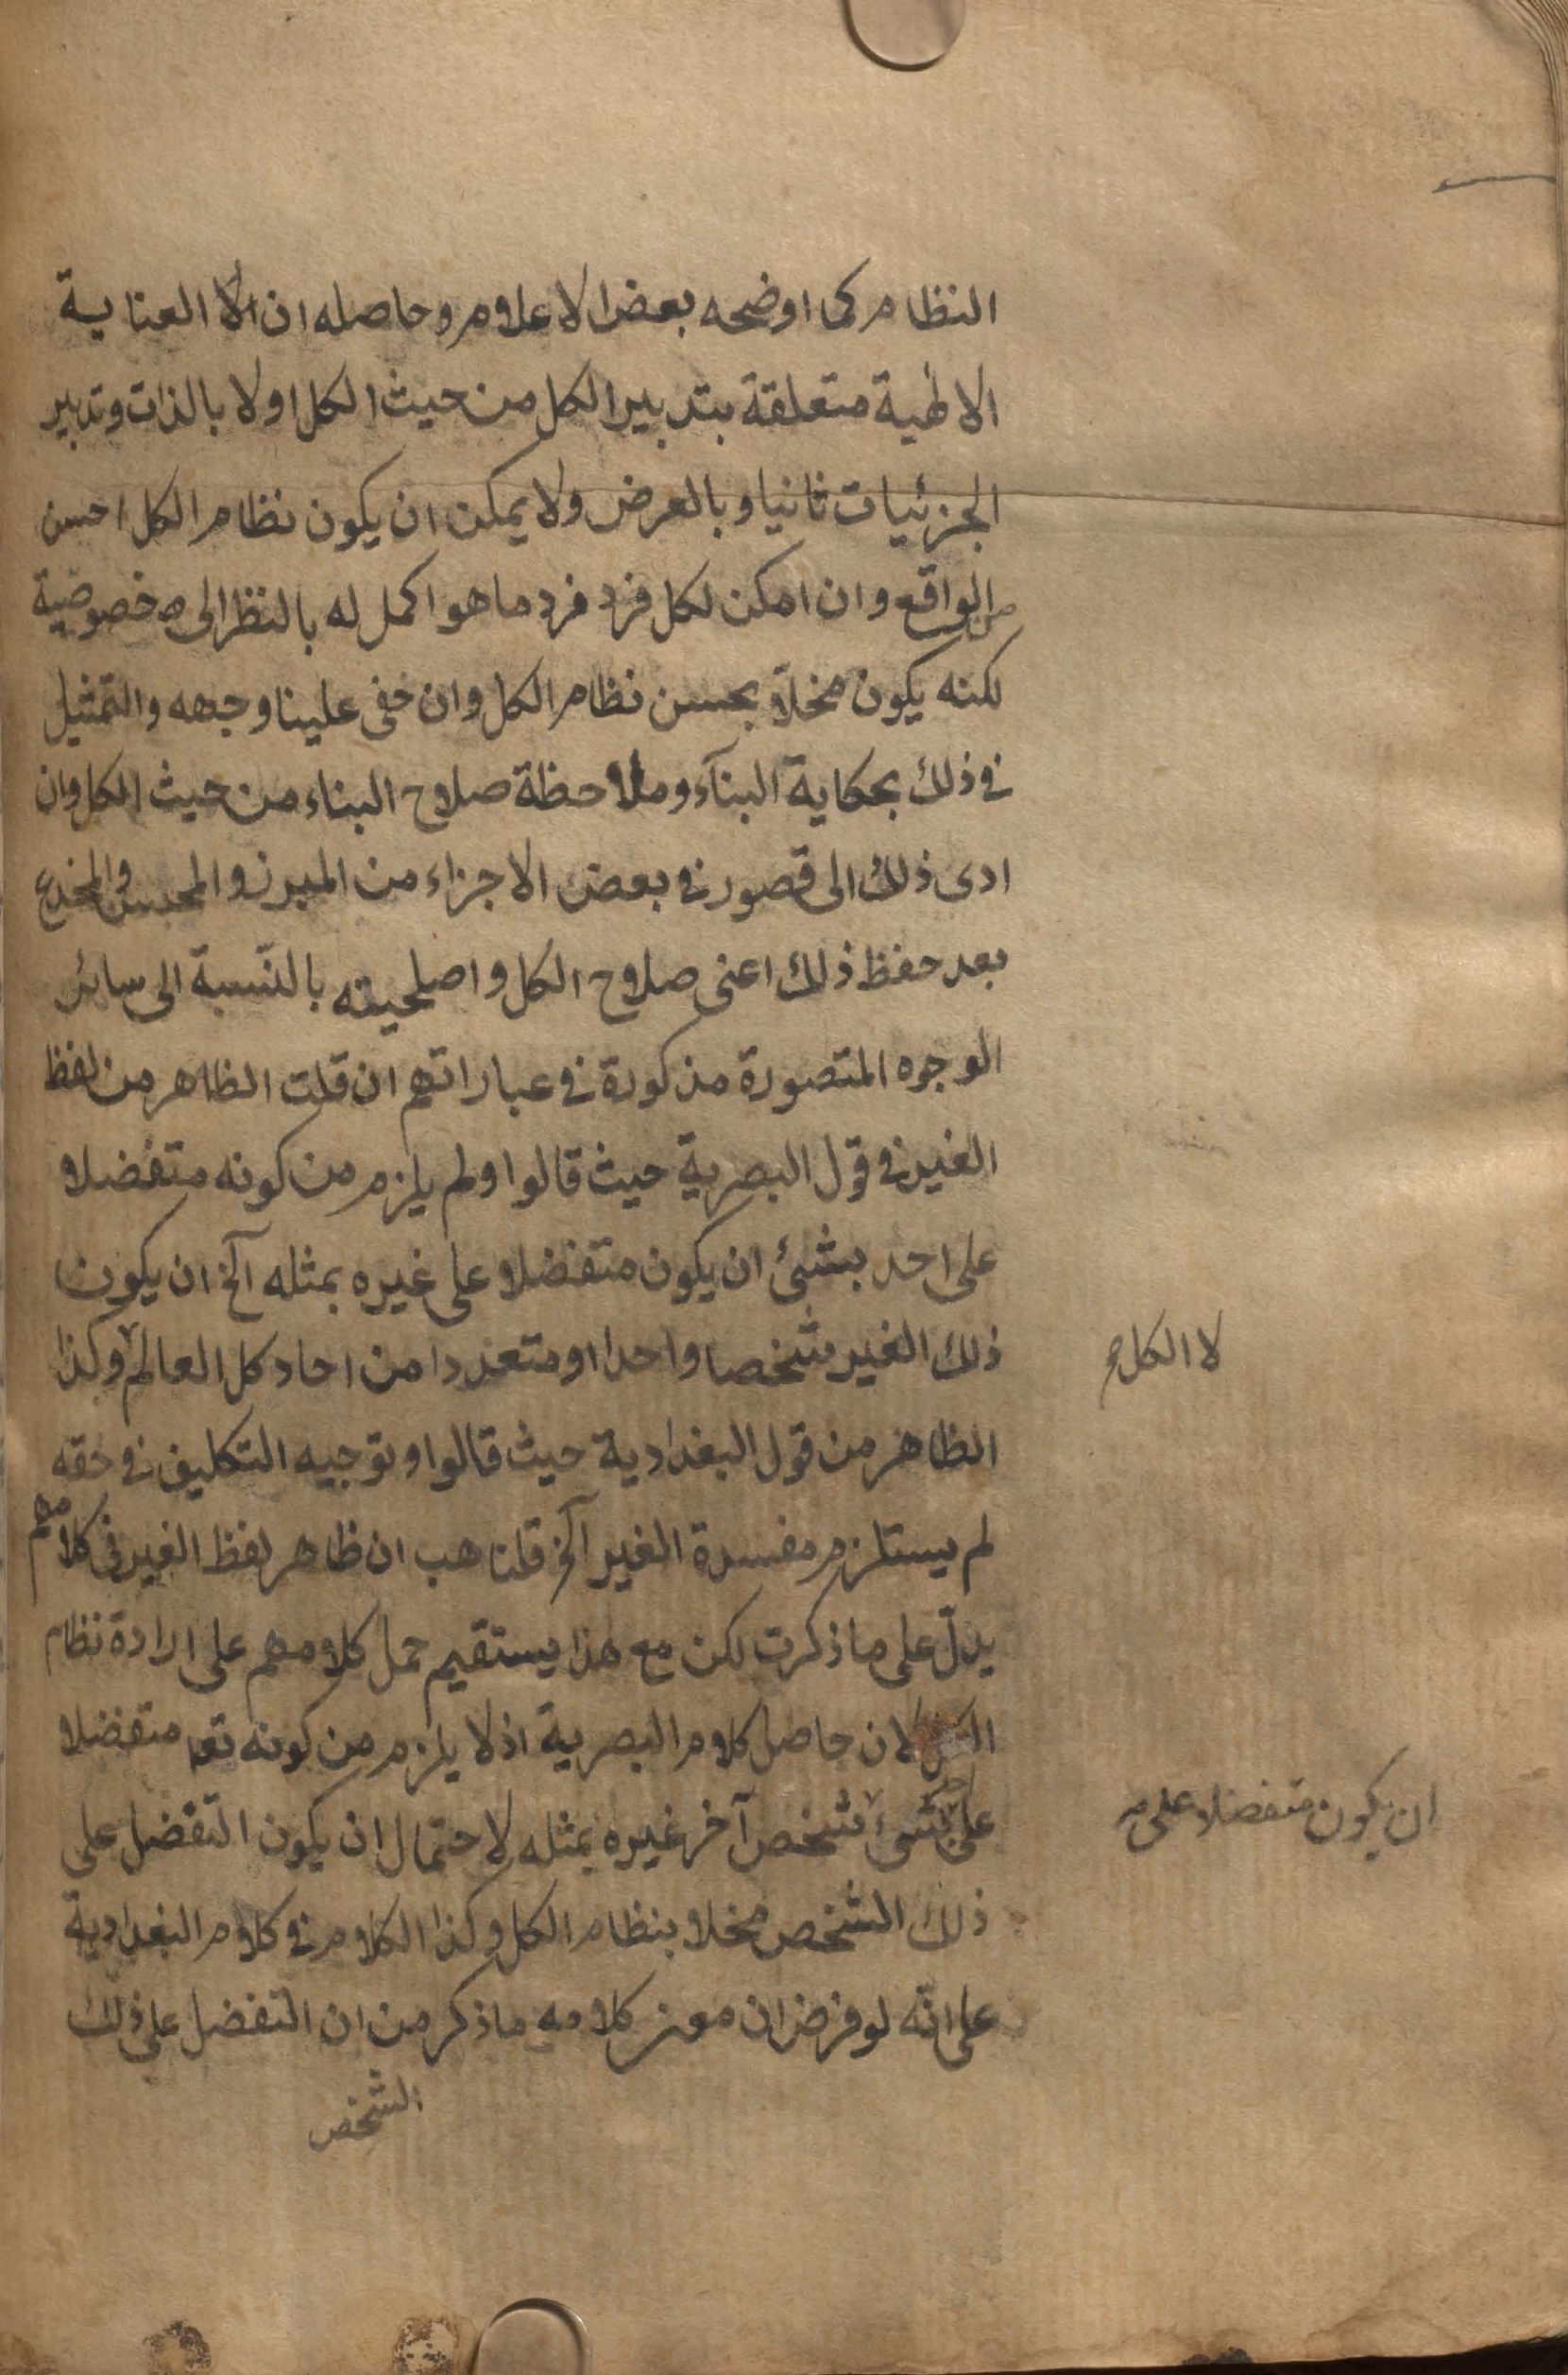 النظام كما اوضحه بعض الاعلام وحاصله ان الا العناية
الالهية متعلقة بتدبير الكل من حيث الكل اولا بالذات وتدبير
الجزئيات ثانيا وبالعرض ولا يمكن ان يكون نظام الكل احسن
من الواقع وان امكن لكل فرد فرد ما هو اكمل له بالنظر الى خصوصية
لكنه يكون مخلاّ بحسن نظام الكل وان خفى علينا وجهه والتمثيل
فى ذلك بحكاية البنآء وملاحظة صلاح البناء من حيث الكل وان
ادى ذلك الى قصور فى بعض الاجزاء من المبرز والمحبس والمخدع
بعد حفظ ذلك اعنى صلاح الكل واصلحيته بالنّسبة الى سائر
الوجوه المتصورة مذكورة فى عباراتهم ان قلت الظاهر من لفظ
الغير فى قول البصرية حيث قالوا ولم يلزم من كونه متفضلا
على احد بشئ ان يكون متفضلا على غيره بمثله آلخ ان يكون
ذلك الغير شخصا واحدا او متعددا من احاد كل العالم وكذا
لا الكل
الظاهر من قول البغدادية حيث قالوا وتوجيه التكليف فى حقه
لم يستلزم مفسدة الغير آلخ قلنا هب ان ظاهر لفظ الغير فى كلامهم
يدلّ على ما ذكرت لكن مع هذا يستقيم حمل كلامهم على ارادة نظام
الكل لان حاصل كلام البصرية اذ لا يلزم من كونه تعا متفضلا
على احد بشئ شخص آخر غيره بمثله لاحتمال ان يكون التفضل على
ان يكون متفضلا على
ذلك الشخص مخلا بنظام الكل وكذا الكلام فى كلام البغدادية
على انّه لو فرض ان معنى كلامه ما ذكر من ان التفضل على ذلك
الشخص